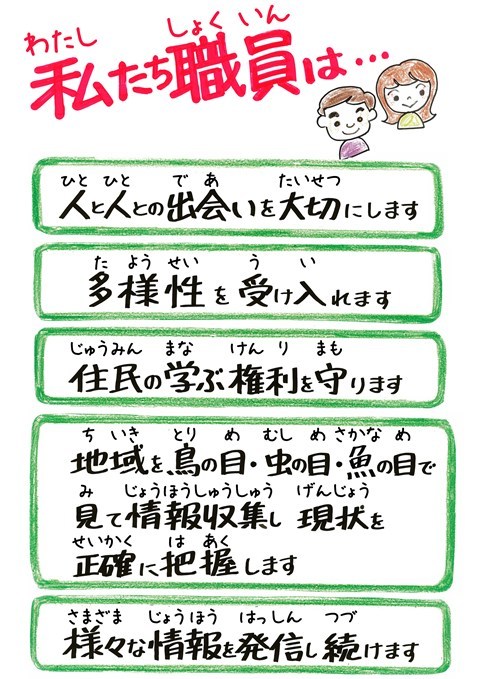 わたし しょく いん
私たち職員は…
ひと ひと で あ たいせつ
人と人との出会いを大切にします
た よう せい う い
多様性を受け入れます
じゅうみん まな けん り まも
住民の学ぶ権利を守ります
ち いき とり め むし め さかな め
地域を鳥の目・虫の目・魚の目で
み じょうほうしゅうしゅう げんじょう
見て情報収集し 現状を
せいかく は あく
正確に把握します
さまざま じょうほう はっしん つづ
様々な情報を発信し続けます